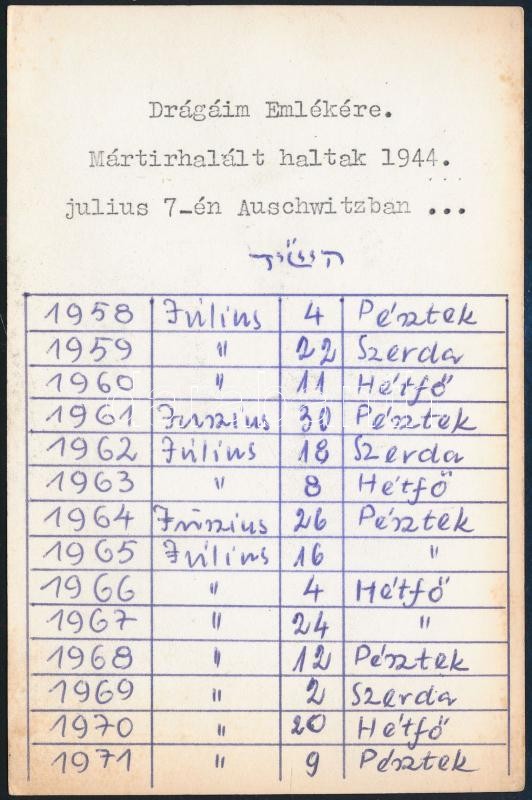 Drágáim Emlékére.
Mártirhalált haltak 1944.
julius 7-én Auschwitzban ...
1958 Július 4 Péntek
1959 " 22 Szerda
1960 " 11 Hétfő
1961 Junius 30 Péntek
1962 Július 18 Szerda
1963 " 8 Hétfő
1964 Június 26 Péntek
1965 Július 16 "
1966 " 4 Hétfő
1967 " 24 "
1968 " 12 Péntek
1969 " 2 Szerda
1970 " 20 Hétfő
1971 " 9 Péntek